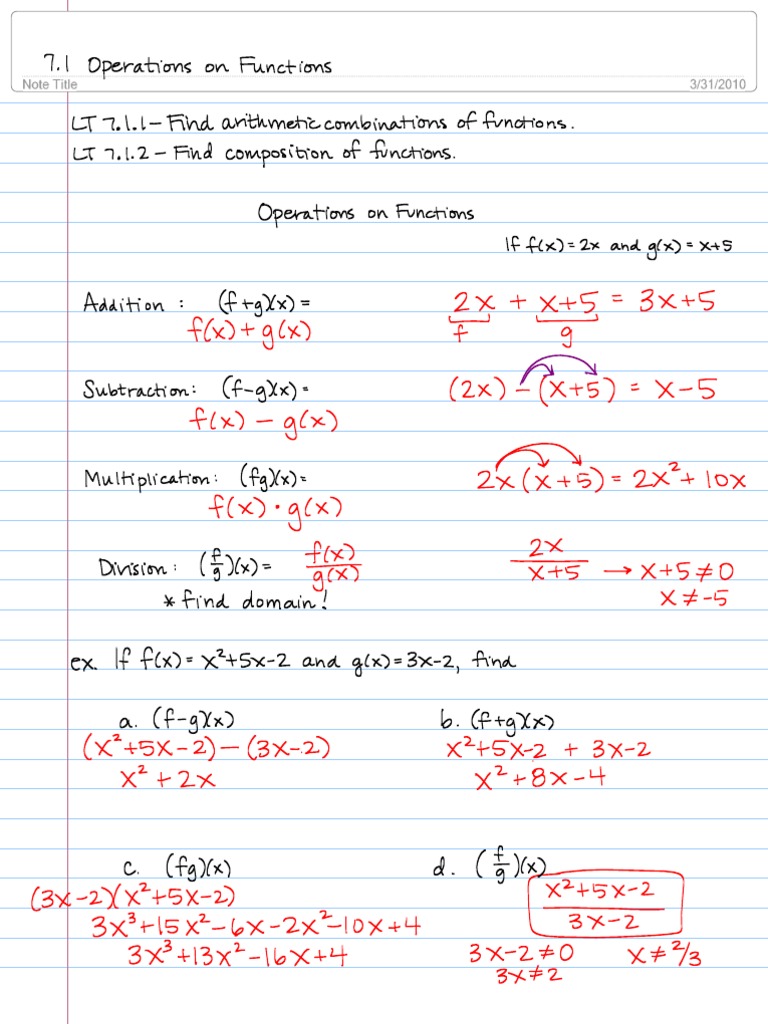 7.1 Operations on Functions
Note Title 3/31/2010
LT 7.1.1 – Find arithmetic combinations of functions.
LT 7.1.2 – Find composition of functions.
Operations on Functions
If f(x) = 2x and g(x) = x+5
Addition : (f+g)(x) = 2x + x+5 = 3x+5
f(x) + g(x) f g
Subtraction: (f-g)(x) = (2x) – (x+5) = x-5
f(x) – g(x)
Multiplication: (fg)(x) = 2x(x+5) = 2x² + 10x
f(x) · g(x)
Division: (f/g)(x) = f(x)/g(x) 2x/x+5 → x+5 ≠ 0
* find domain! x ≠ -5
ex. If f(x) = x²+5x-2 and g(x) = 3x-2, find
a. (f-g)(x) b. (f+g)(x)
(x²+5x-2) – (3x-2) x²+5x-2 + 3x-2
x² + 2x x² + 8x - 4
c. (fg)(x) d. (f/g)(x)
(3x-2)(x²+5x-2) x²+5x-2/3x-2
3x³+15x²-6x-2x²-10x+4
3x³+13x²-16x+4 3x-2 ≠ 0 x ≠ 2/3
3x ≠ 2